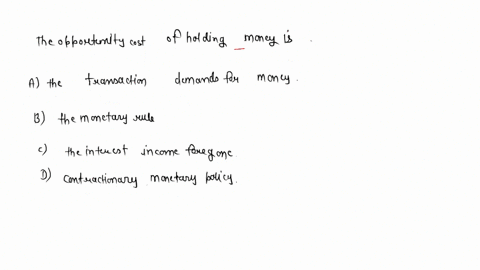 The opportunity cost of holding money is.
A) the transaction demands for money.
B) the monetary rule
c) the interest income foregone
D) contractionary monetary policy.